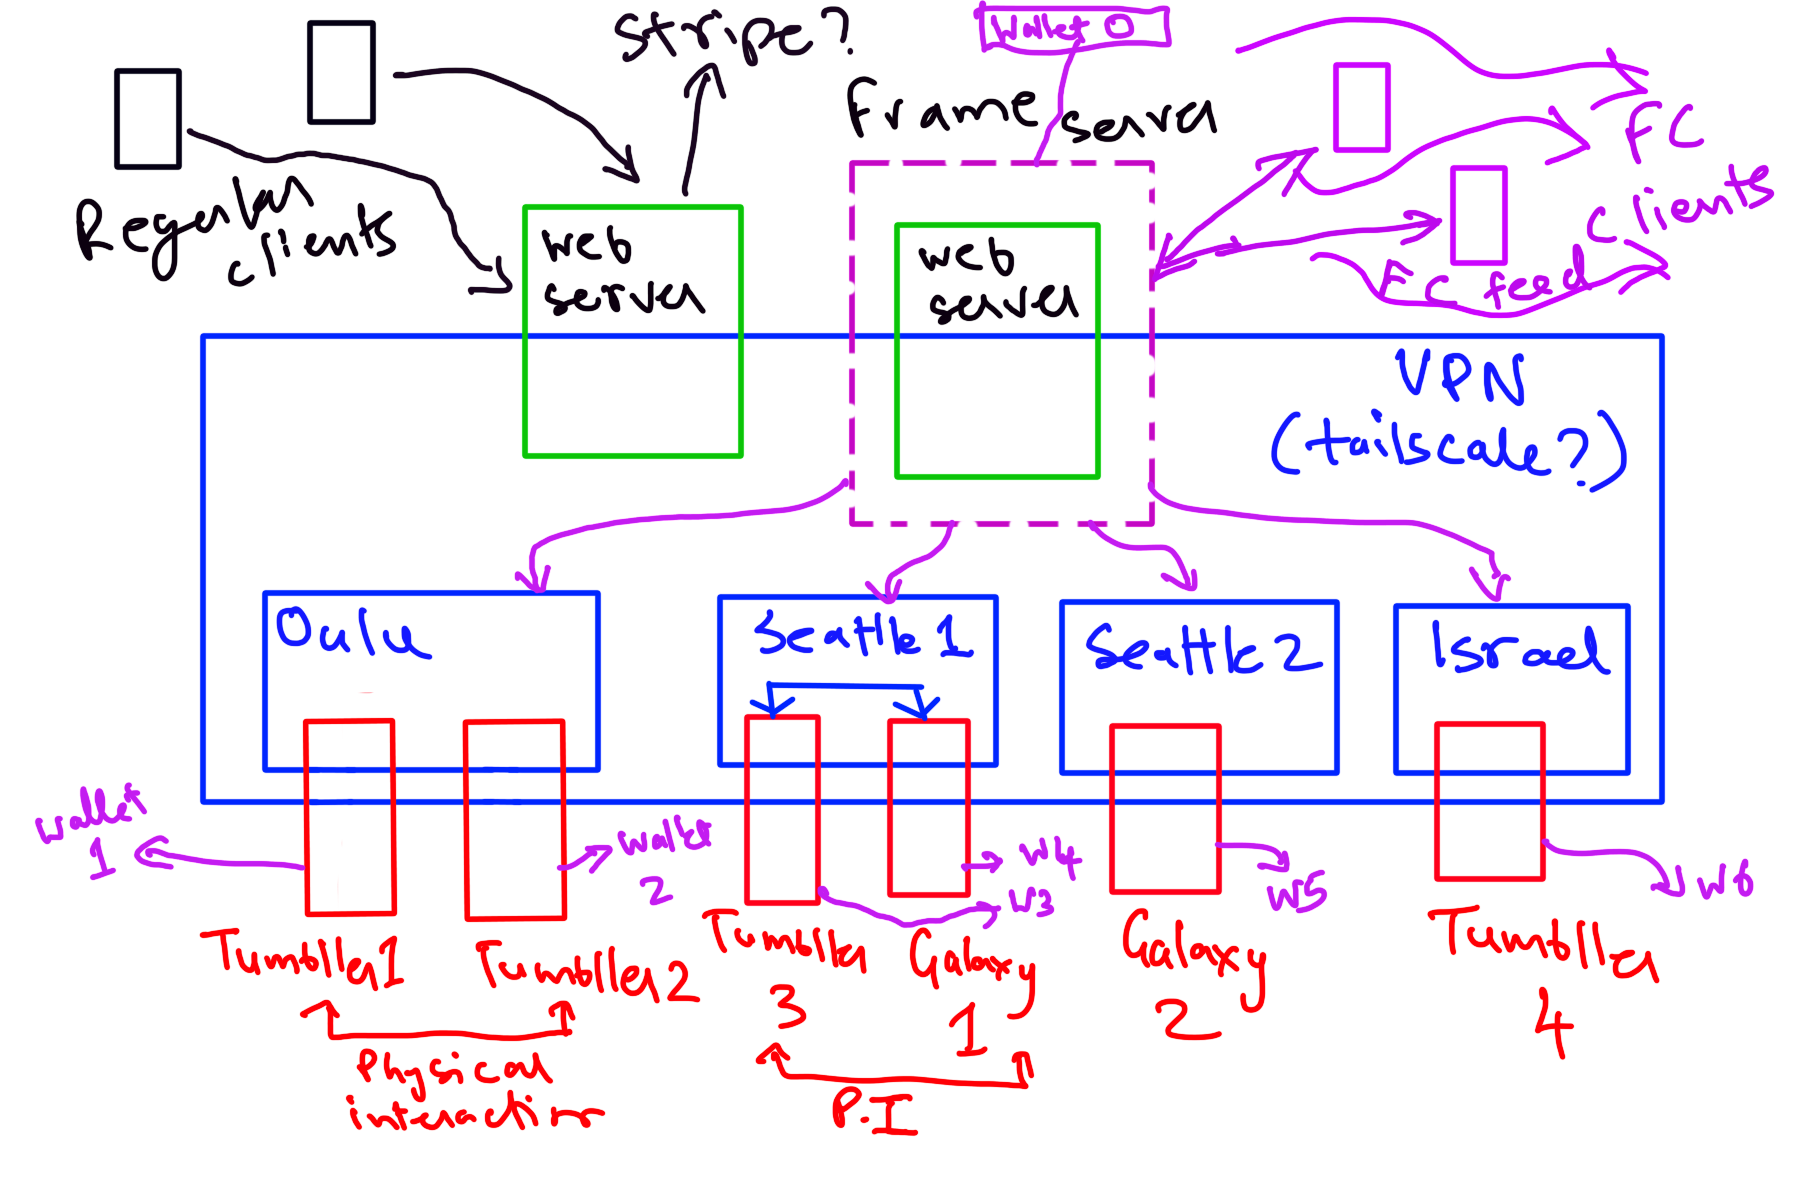 Stripe?
Wallet 0
Frame server
Regular
clients
web
server
web
server
FC
clients
FC feed
VPN
(tailscale?)
Oulu
Seattle 1
Seattle 2
Israel
wallet
1
wallet
2
W4
W3
W5
W6
Tumbller1
Tumbller2
Tumbller
3
Galaxy
1
Galaxy
2
Tumbller
4
Physical
interaction
P.I